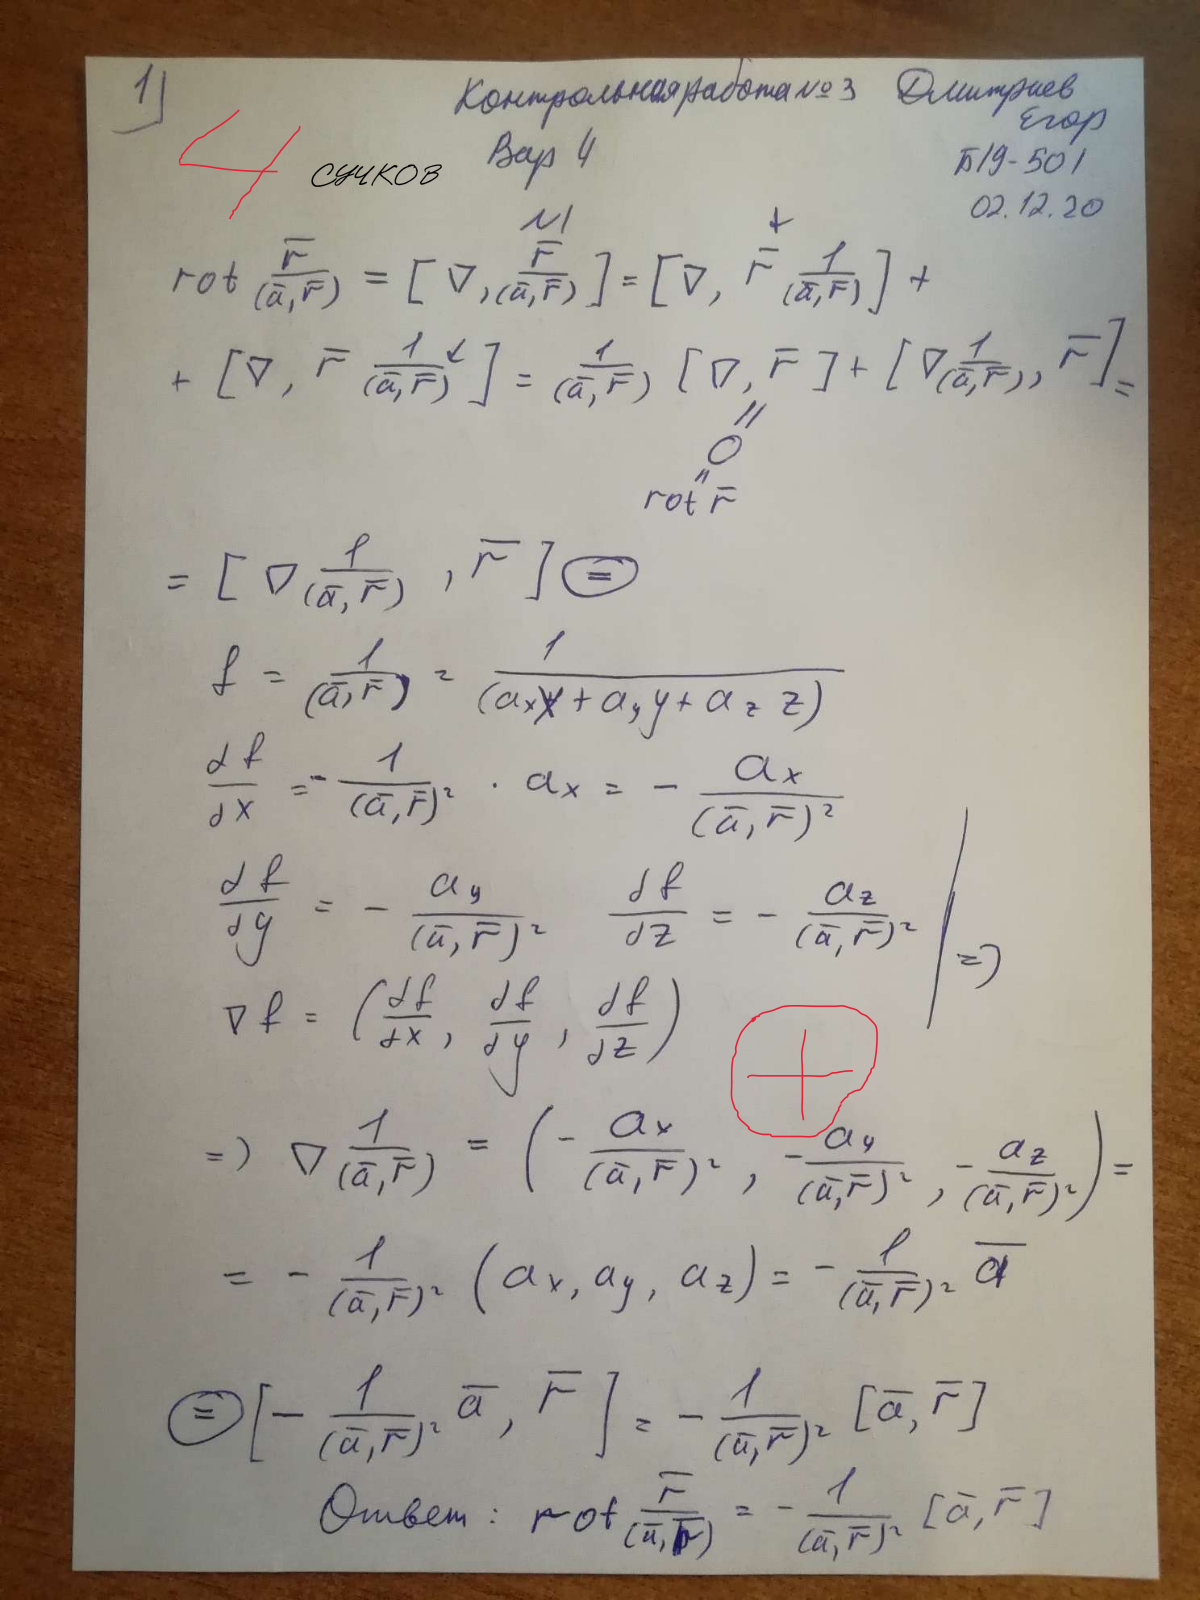 1)
Контрольная работа №3 Дмитриев
Егор
Вар 4
Б19-501
02.12.20
4 сучков
№1
rot r̅/(a̅,r̅) = [∇, r̅/(a̅,r̅)] = [∇, r̅↓ 1/(a̅,r̅)] +
+ [∇, r̅ 1/(a̅,r̅)↓] = 1/(a̅,r̅) [∇, r̅] + [∇ 1/(a̅,r̅), r̅] =
=
0
=
rot r̅
= [∇ 1/(a̅,r̅), r̅] (=)
f = 1/(a̅,r̅) = 1/(aₓx + a_y y + a_z z)
df/dx = - 1/(a̅,r̅)² · aₓ = - aₓ/(a̅,r̅)²
df/dy = - a_y/(a̅,r̅)² df/dz = - a_z/(a̅,r̅)² | =>
∇f = (df/dx, df/dy, df/dz)
+
=> ∇ 1/(a̅,r̅) = (- aₓ/(a̅,r̅)², - a_y/(a̅,r̅)², - a_z/(a̅,r̅)²) =
= - 1/(a̅,r̅)² (aₓ, a_y, a_z) = - 1/(a̅,r̅)² a̅
(=) [- 1/(a̅,r̅)² a̅, r̅] = - 1/(a̅,r̅)² [a̅, r̅]
Ответ: rot r̅/(a̅,r̅) = - 1/(a̅,r̅)² [a̅, r̅]